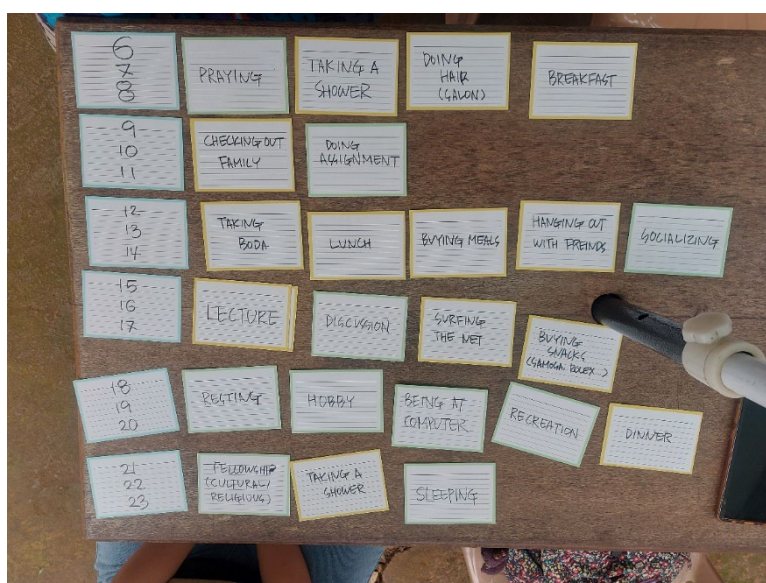 6
7
8
PRAYING
TAKING A
SHOWER
DOING
HAIR
(SALON)
BREAKFAST
9
10
11
CHECKING OUT
FAMILY
DOING
ASSIGNMENT
12
13
14
TAKING
BODA
LUNCH
BUYING MEALS
HANGING OUT
WITH FREINDS
SOCIALIZING
15
16
17
LECTURE
DISCUSSION
SURFING
THE NET
BUYING
SNACKS
(SAMOSA ROLEX..)
18
19
20
RESTING
HOBBY
BEING AT
COMPUTER
RECREATION
DINNER
21
22
23
FELLOWSHIP
(CULTURAL/
RELIGIOUS)
TAKING A
SHOWER
SLEEPING